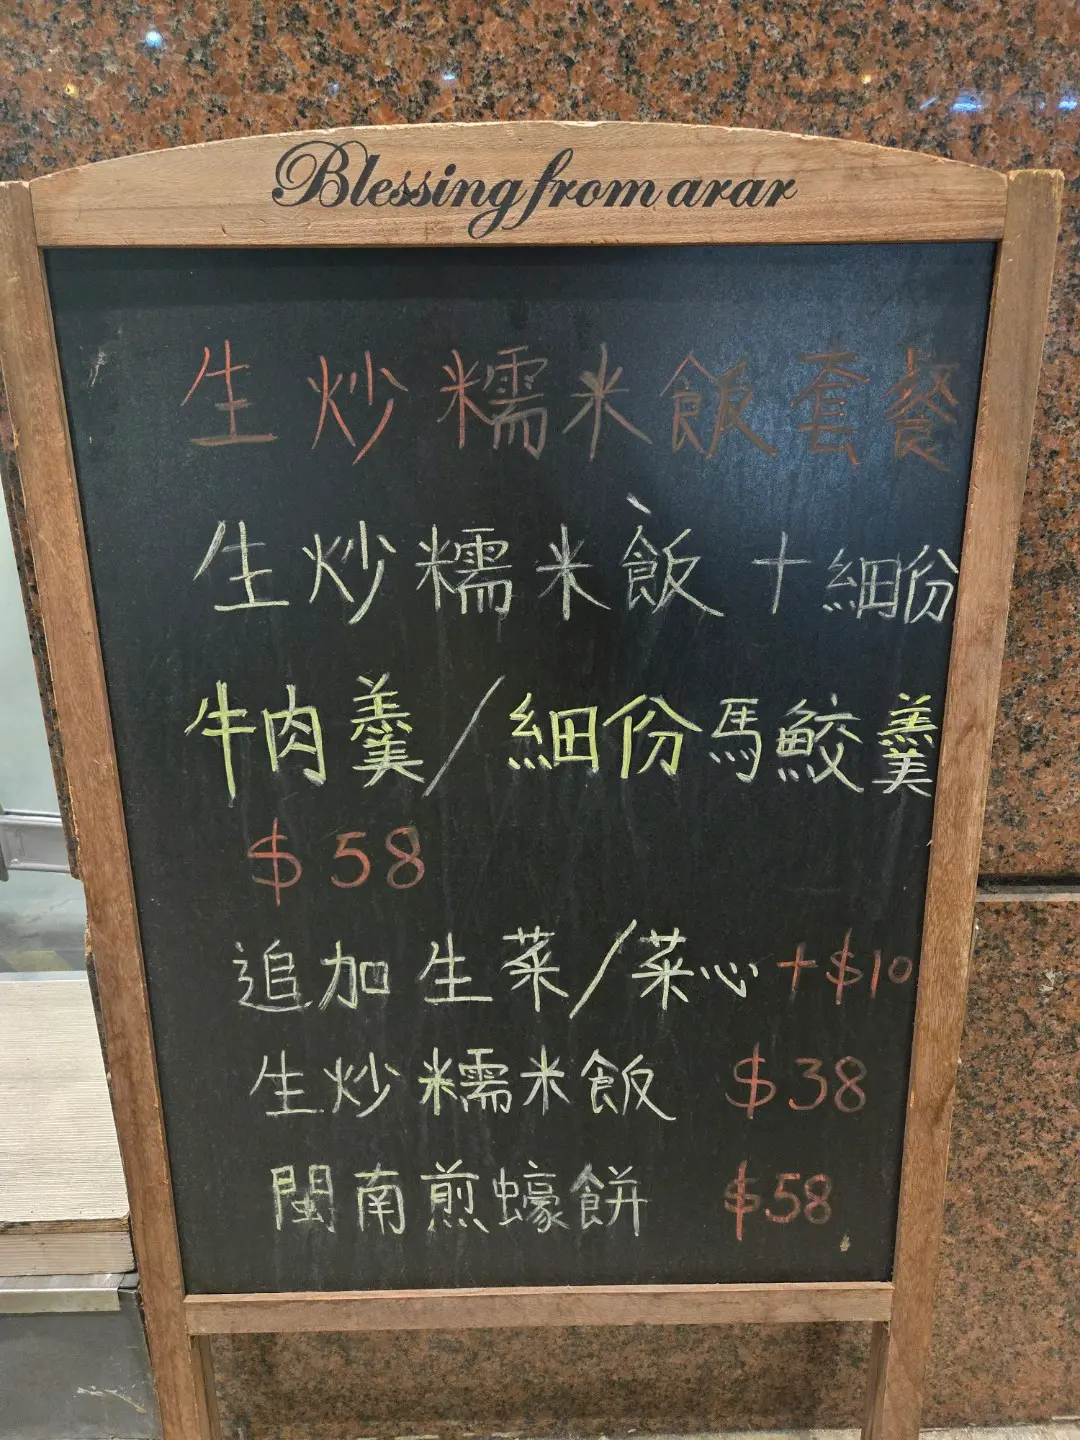 Blessing from arar
生炒糯米飯套餐
生炒糯米飯+細份
牛肉羹/細份馬鮫羹
$58
追加生菜/菜心+$10
生炒糯米飯 $38
閩南煎蠔餅 $58